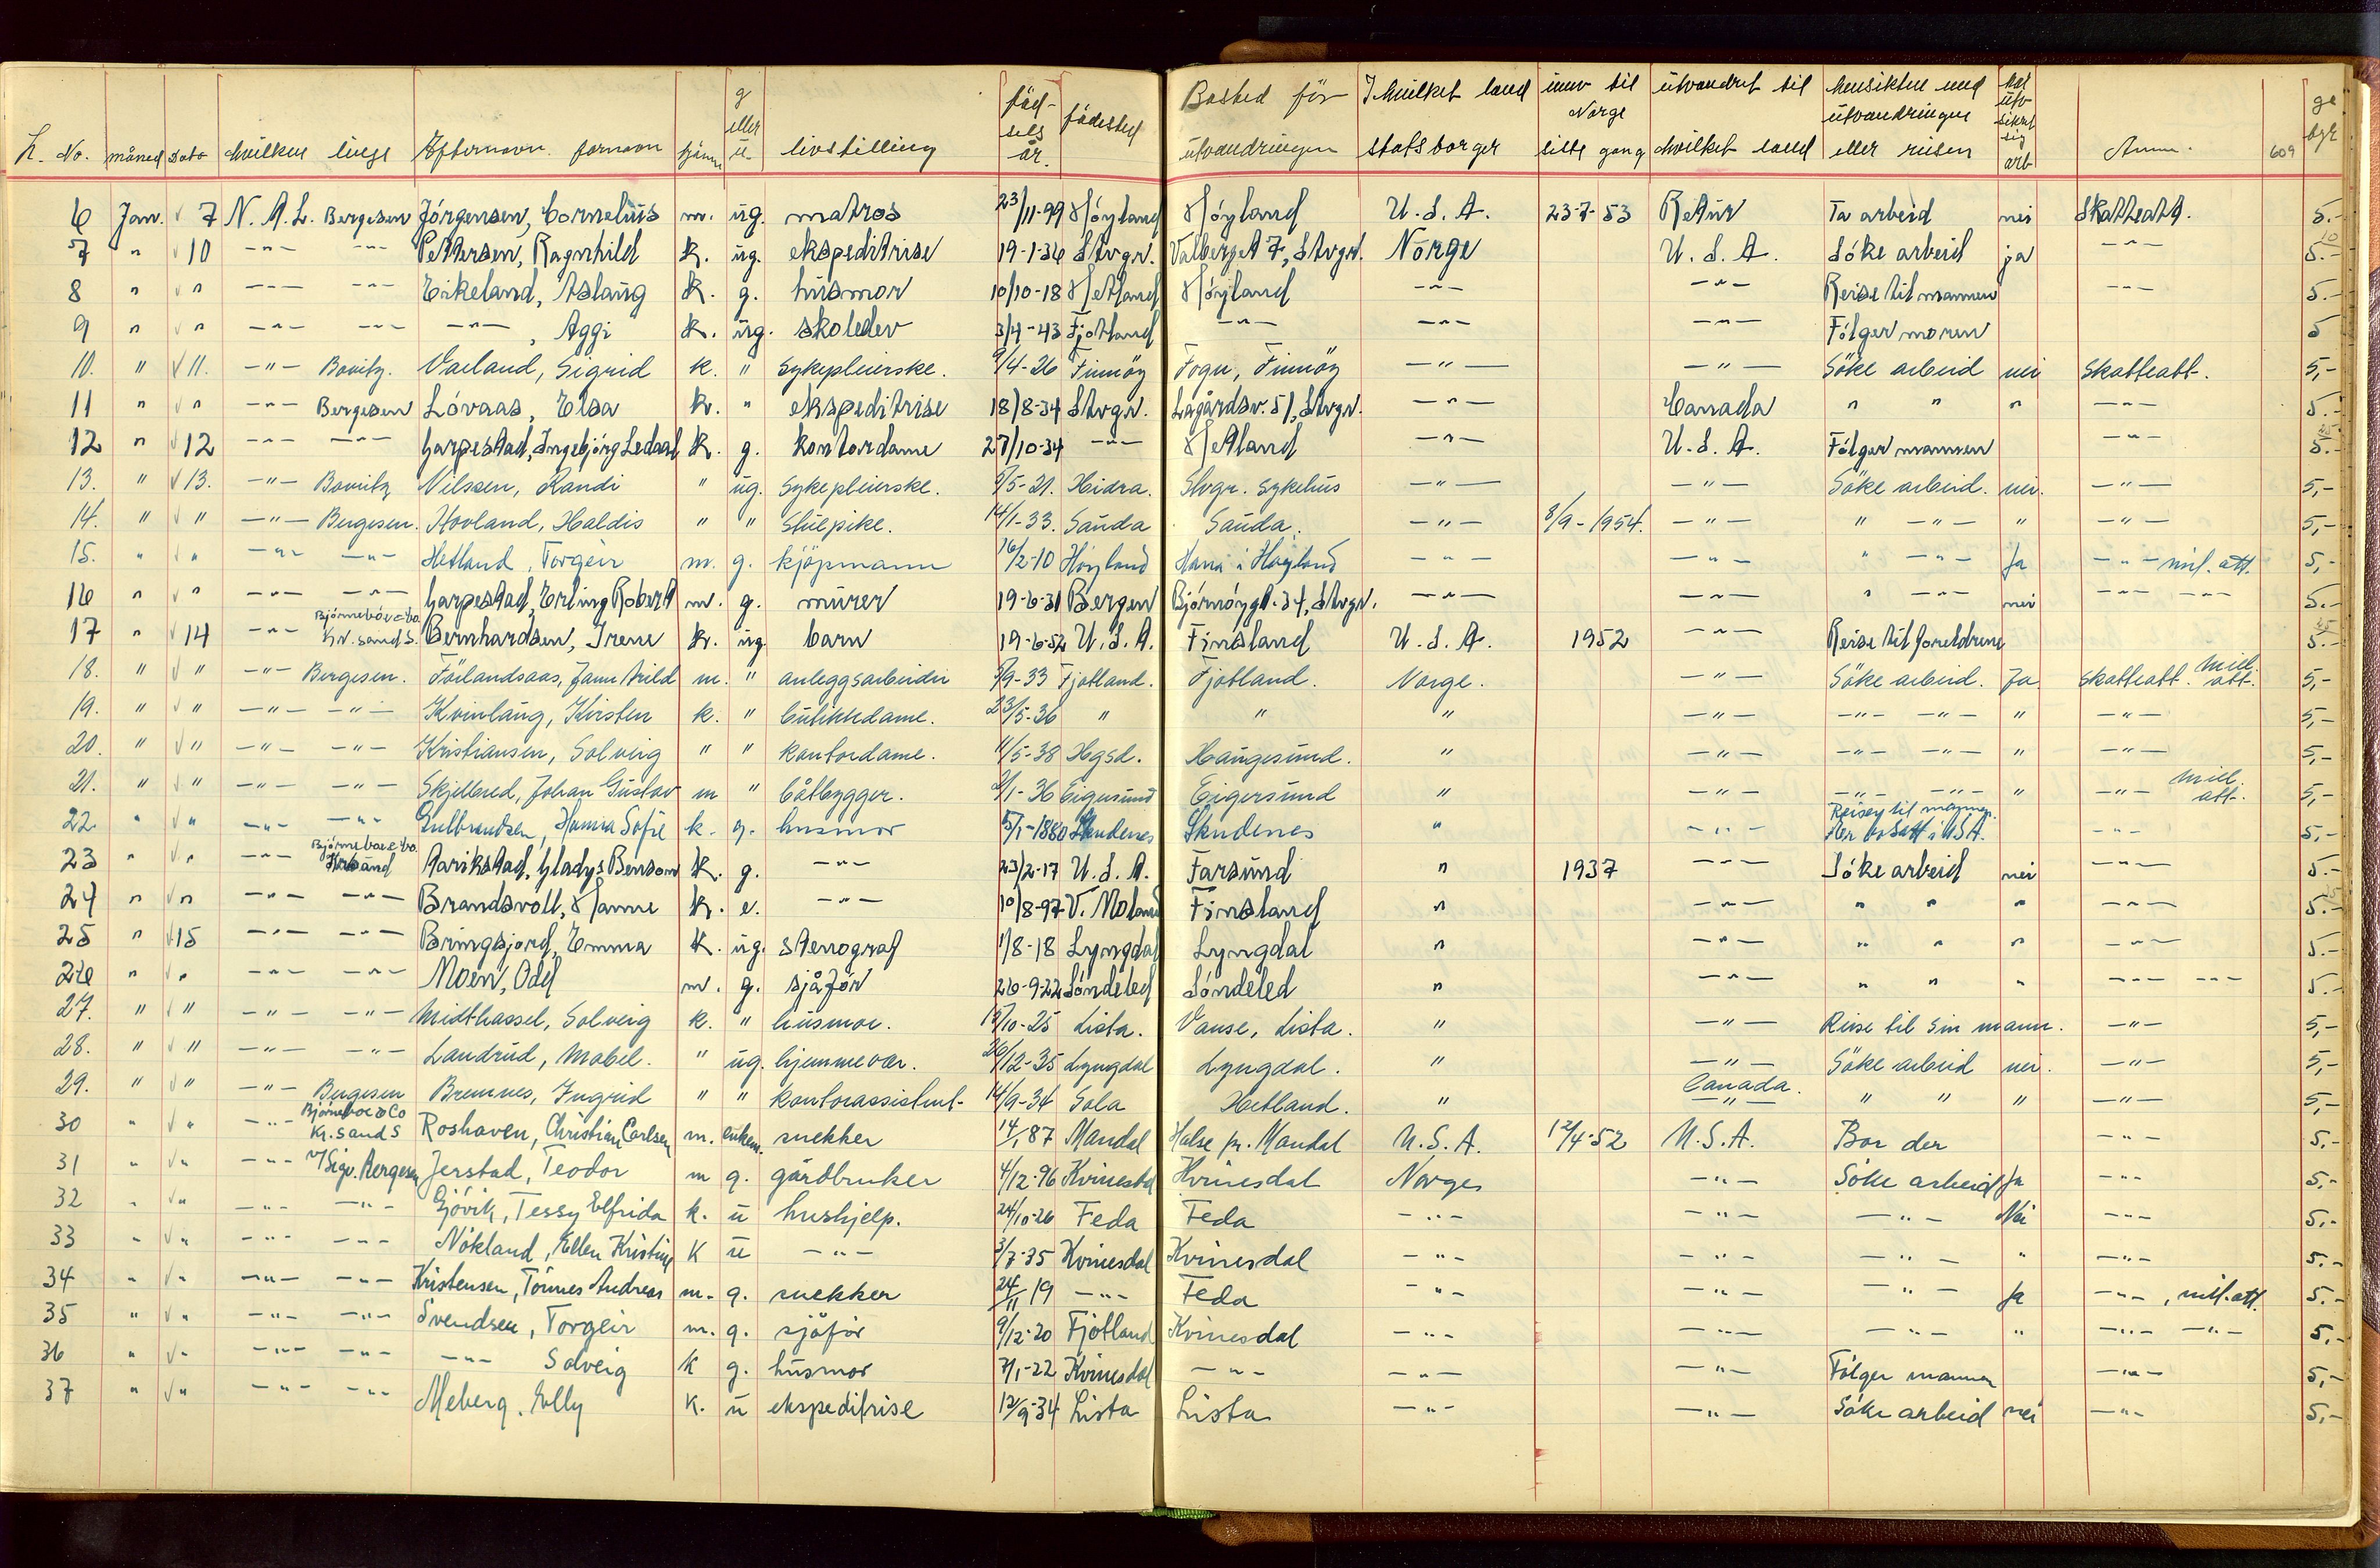 L. No. måned Dato hvilken linje Efternavn fornavn kjønn g eller u livstilling fødselsår. fødested Bosted før utvandringen I hvilket land statsborger innv til Norge siste gang utvandret til hvilket land hensikten med utvandringen eller reisen har utv sikret sig arb Anm. 609 ge byr
6 Jan. √ 7 N. A. L. Bergesen Jörgensen, Cornelius m. ug. matros 23/11-99 Höyland Höyland U.S.A. 23-7-53 Retur Ta arbeid nei Skatteatt. 5.-
7 " √ 10 -"- -"- Pettersen, Ragnhild K. ug. ekspeditrise 19-1-36 Stvgr. Valberget 7, Stvgr. Norge U.S.A. Söke arbeid ja -"- 5.-
8 " √ " -"- -"- Eikeland, Aslaug K. g. husmor 10/10-18 Hetland Höyland -"- -"- Reise til mannen -"- 5.-
9 " √ " -"- -"- -"-, Aggi K. ug. skoleelev 3/4-43 Fjotland -"- -"- -"- Fölger moren 5
10. " √ 11. -"- Bovitz. Vaeland, Sigrid k. " sykepleierske. 9/4-26 Finnöy Fogn, Finnöy -"- -"- Söke arbeid nei Skatteatt. 5,-
11 " √ " -"- Bergesen Lövaas, Elsa k. " ekspeditrise 18/8-34 Stvgr. Lagårdsv. 51, Stvgr. -"- Canada " " " -"- 5.-
12 " √ 12 -"- -"- Garpestad, Ingebjörg Ledaal K. g. kontordame 27/10-34 -"- Hetland -"- U.S.A. Fölger mannen -"- 5.-
13. " √ 13. -"- Bovitz Nilssen, Randi " ug. Sykepleierske. 9/5-21. Hidra. Stvgr. Sykehus -"- -"- Söke arbeid. nei. -"- 5,-
14. " √ " -"- Bergesen. Hovland, Haldis " " Stuepike. 14/1-33. Sauda Sauda. -"- 8/9-1954. -"- " -"- " -"- 5,-
15. " √ " -"- -"- Hetland, Torgeir m. g. kjöpmann 16/2-10 Höyland Hana i Höyland -"- -"- " -"- Ja -"- mil. att. 5,-
16 " √ " -"- -"- Garpestad, Erling Robert m. g. murer 19-6-31 Bergen Björnöygt. 34, Stvgr. -"- -"- " -"- nei -"- -"- 5.-
17 " √ 14 -"- Björneboe & Co. Kr. sand S. Bernhardsen, Irene k. ug barn 19-6-52 U.S.A. Finsland U.S.A. 1952 -"- Reise til foreldrene 5.-
18. " √ " -"- Bergesen. Förlandsaas, Jann Arild m. " anleggsarbeider 9/9-33 Fjotland. Fjotland. Norge. -"- Söke arbeid. Ja. Skatteatt. mill. att. 5,-
19. " √ " -"- -"- Kvinlaug, Kirsten k. " butikkdame. 23/5-36 " " " -"- -"- -"- " -"- 5,-
20. " √ " -"- -"- Kristiansen, Solveig " " kontordame. 11/5-38 Hgsd. Haugesund. " -"- -"- -"- " -"- 5,-
21. " √ " -"- -"- Skjelbred, Johan Gustav m " båtbygger. 2/1-36 Eigersund Eigersund " -"- -"- -"- " -"- mill. att. 5,-
22 " √ " -"- -"- Gulbrandsen, Hanna Sofie k. g. husmor 5/1-1880 Skudenes Skudenes " -"- Reiser til mannen. Er bosatt i USA. -"- 5,-
23 " √ " -"- Björneboe & Co. Krsand Aarikstad, Gladys Benson K. g. -"- 23/2-17 U.S.A. Farsund " 1937 -"- Söke arbeid nei -"- 5.-
24 " √ " -"- -"- Brandsvoll, Hanne k. e. -"- 10/8-97 V. Moland Finsland " -"- " " " -"- 5.-
25 " √ 15 -"- -"- Bringsjord, Emma K. ug. stenograf 1/8-18 Lyngdal Lyngdal " -"- " " " -"- 5.-
26 " √ " -"- -"- Moen, Odd m. g. sjåför 26-9-22 Söndeled Söndeled " -"- " " " -"- -"- 5.-
27. " √ " -"- -"- Midthassel, Solveig k. " husmor. 12/10-25 Lista. Vanse, Lista. " -"- Reise til sin mann. -"- 5,-
28. " √ " -"- -"- Landrud, Mabel. " ug. hjemmevær. 26/12-35 Lyngdal Lyngdal. " -"- Söke arbeid nei. -"- 5,-
29. " √ " -"- Bergesen Bremnes, Ingrid " " kontorassistent. 14/9-34 Sola Hetland. " Canada. -"- " " " -"- 5,-
30 " √ " -"- Björneboe & Co Kr. sand S Roshaven, Christian Carlsen m. enkem. snekker 14/1 87 Mandal Halse pr. Mandal U.S.A. 12/4-52 U.S.A. Bor der -"- 5,-
31 " √ " -"- v/Sigv. Bergesen Jerstad, Teodor m g. gårdbruker 4/12-96 Kvinesdal Kvinesdal Norge -"- Söke arbeid Ja -"- 5,-
32 " √ " -"- -"- Gjövik, Tessy Elfrida k. u hushjelp. 24/10-26 Feda Feda -"- -"- -"- Nei -"- 5,-
33 " √ " -"- -"- Nökland, Ellen Kristine K u -"- 3/7-35 Kvinesdal Kvinesdal -"- -"- -"- " -"- 5,-
34 " √ " -"- -"- Kristensen, Tönnes Andreas m. g. snekker 24/11 19 -"- Feda -"- -"- -"- Ja -"-, mil. att. 5.-
35 " √ " -"- -"- Svendsen, Torgeir m. g. sjåför 9/12-20 Fjotland Kvinesdal -"- -"- -"- " -"- -"- 5,-
36 " √ " -"- -"- -"- Solveig k g. husmor 7/1-22 Kvinesdal -"- -"- -"- Fölger mannen -"- 5,-
37 " √ " -"- -"- Meberg, Elly K. u ekspeditrise 12/9-34 Lista Lista -"- -"- Söke arbeid nei -"- 5,-